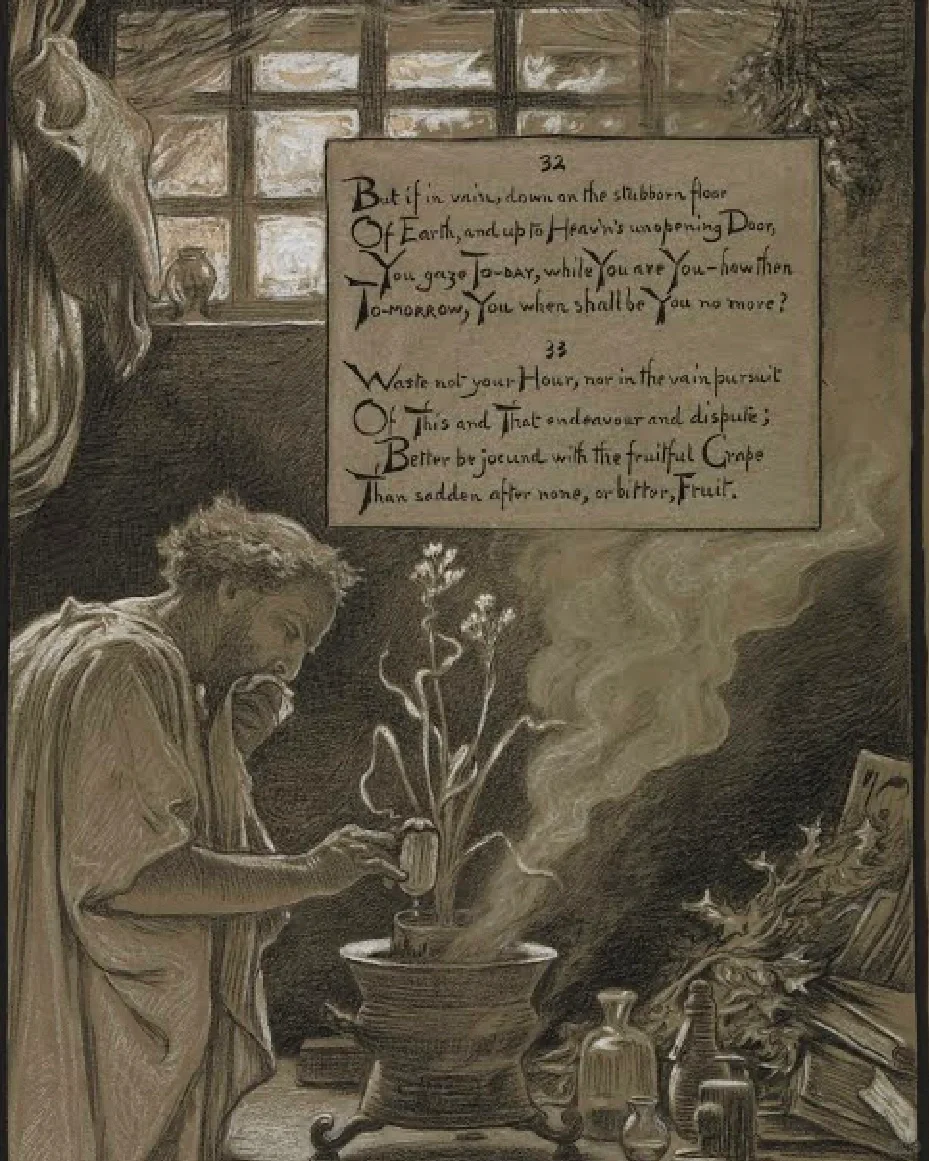 32
But if in vain, down on the stubborn floor
Of Earth, and up to Heav'n's unopening Door,
You gaze TO-DAY, while You are You—how then
TO-MORROW, You when shall be You no more?
33
Waste not your Hour, nor in the vain pursuit
Of This and That endeavour and dispute;
Better be jocund with the fruitful Grape
Than sadden after none, or bitter, Fruit.